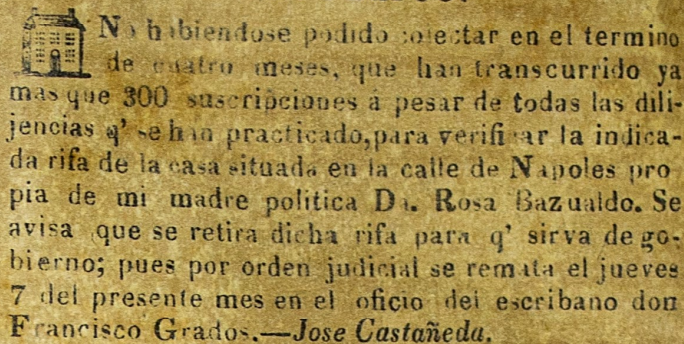 No habiendose podido colectar en el termino
de cuatro meses, que han transcurrido ya
mas que 300 suscripciones á pesar de todas las dili-
jencias q' se han practicado, para verificar la indica-
da rifa de la casa situada en la calle de Napoles pro
pia de mi madre politica Da. Rosa Bazualdo. Se
avisa que se retira dicha rifa para q' sirva de go-
bierno; pues por orden judicial se remata el jueves
7 del presente mes en el oficio del escribano don
Francisco Grados.—Jose Castañeda.